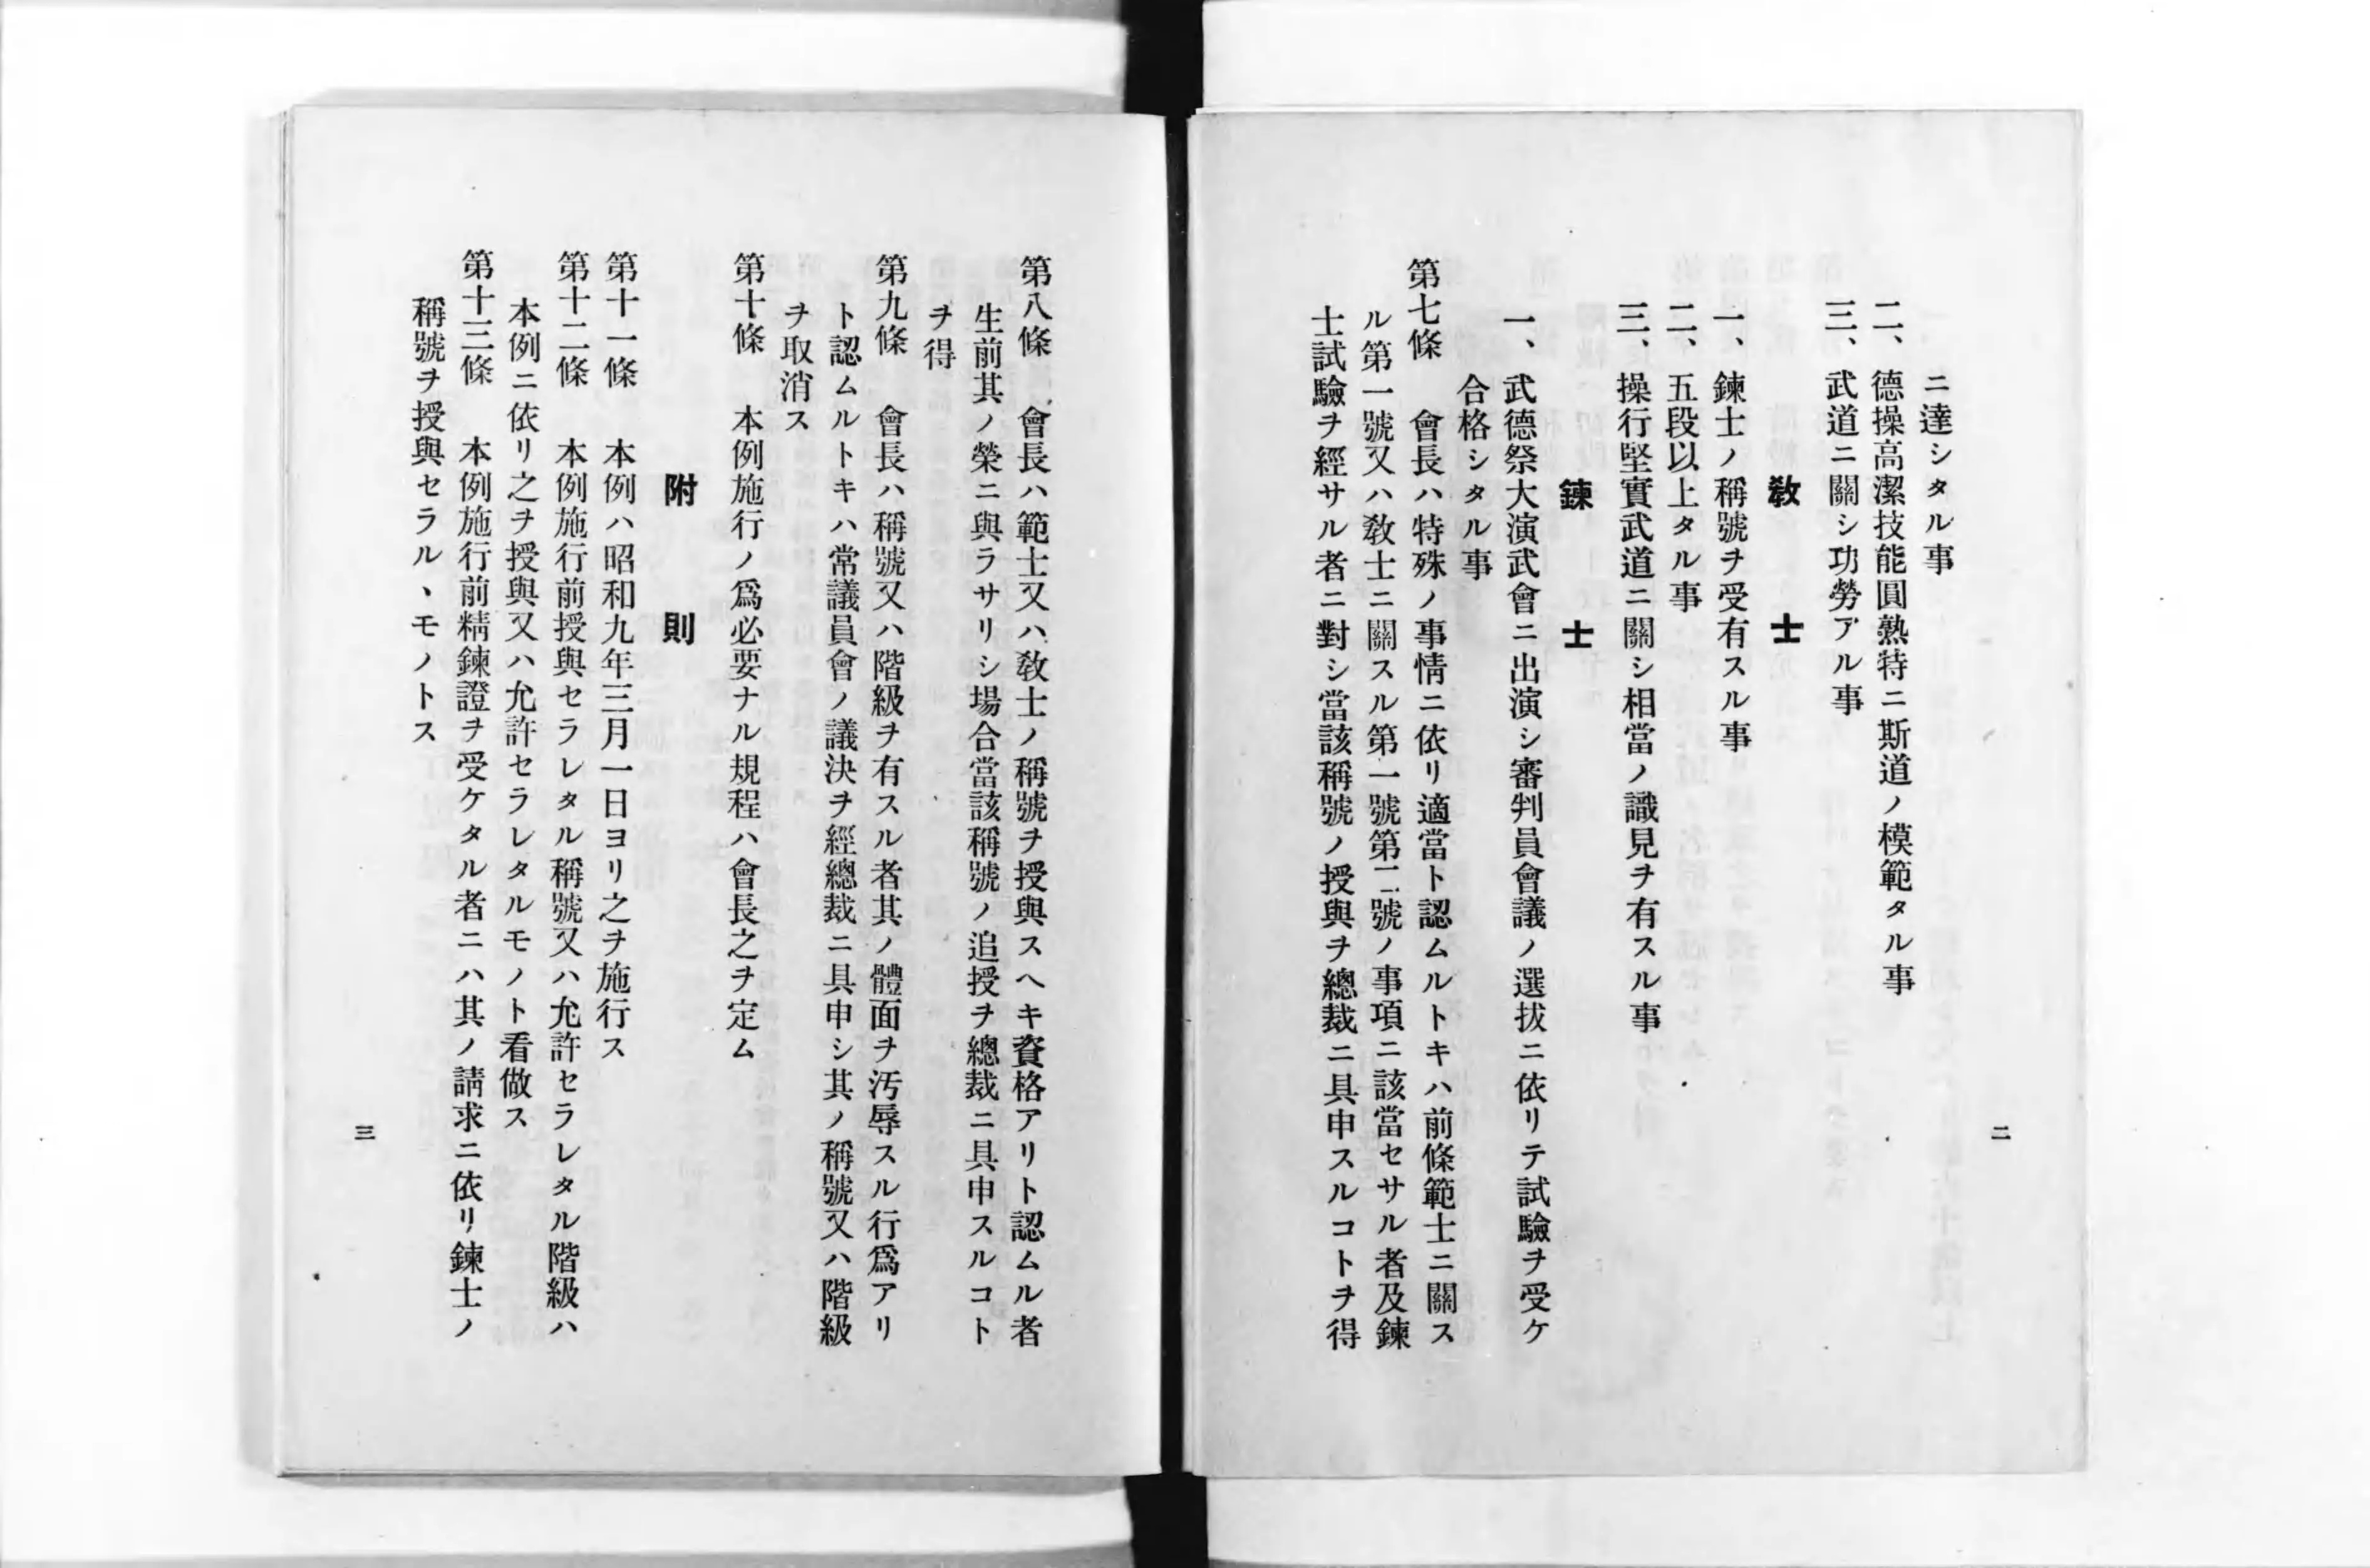 ニ達シタル事
二、德操高潔技能圓熟特ニ斯道ノ模範タル事
三、武道ニ關シ功勞アル事
敎士
一、鍊士ノ稱號ヲ受有スル事
二、五段以上タル事
三、操行堅實武道ニ關シ相當ノ識見ヲ有スル事
鍊士
一、武德祭大演武會ニ出演シ審判員會議ノ選拔ニ依リテ試驗ヲ受ケ
合格シタル事
第七條 會長ハ特殊ノ事情ニ依リ適當ト認ムルトキハ前條範士ニ關ス
ル第一號又ハ敎士ニ關スル第一號第二號ノ事項ニ該當セサル者及鍊
士試驗ヲ經サル者ニ對シ當該稱號ノ授與ヲ總裁ニ具申スルコトヲ得
二
第八條 會長ハ範士又ハ敎士ノ稱號ヲ授與スヘキ資格アリト認ムル者
生前其ノ榮ニ與ラサリシ場合當該稱號ノ追授ヲ總裁ニ具申スルコト
ヲ得
第九條 會長ハ稱號又ハ階級ヲ有スル者其ノ體面ヲ汚辱スル行爲アリ
ト認ムルトキハ常議員會ノ議決ヲ經總裁ニ具申シ其ノ稱號又ハ階級
ヲ取消ス
第十條 本例施行ノ爲必要ナル規程ハ會長之ヲ定ム
附則
第十一條 本例ハ昭和九年三月一日ヨリ之ヲ施行ス
第十二條 本例施行前授與セラレタル稱號又ハ允許セラレタル階級ハ
本例ニ依リ之ヲ授與又ハ允許セラレタルモノト看做ス
第十三條 本例施行前精鍊證ヲ受ケタル者ニハ其ノ請求ニ依リ鍊士ノ
稱號ヲ授與セラル、モノトス
三